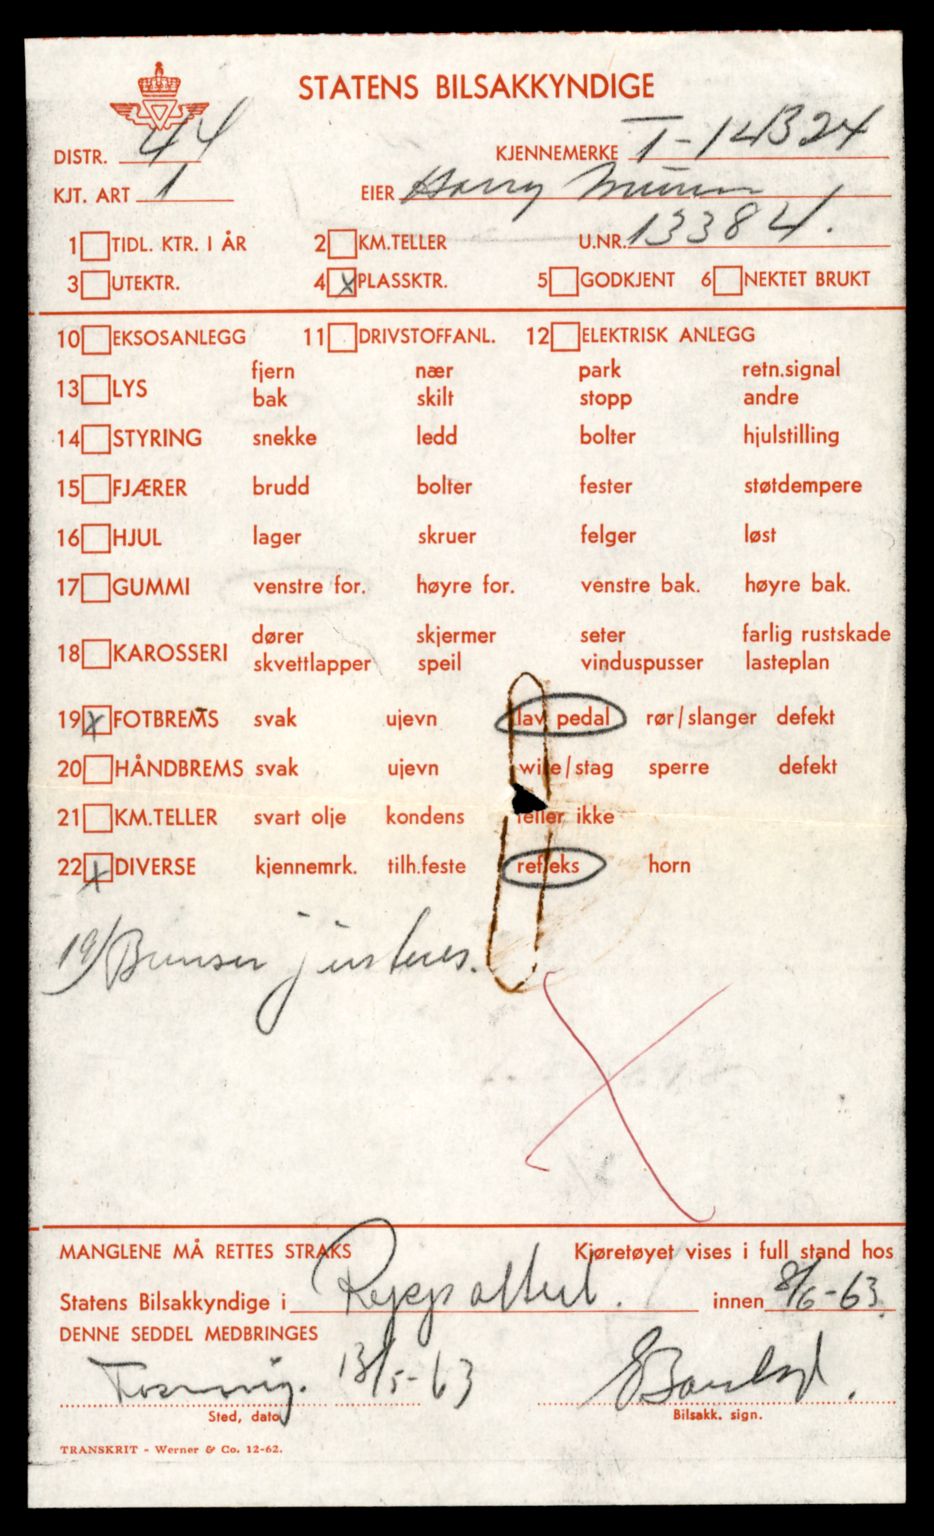 STATENS BILSAKKYNDIGE
DISTR. 44 KJENNEMERKE T-14324
KJT. ART 1 EIER Harry
1 TIDL. KTR. I ÅR 2 KM.TELLER U.NR. 13384.
3 UTEKTR. 4 x PLASSKTR. 5 GODKJENT 6 NEKTET BRUKT
10 EKSOSANLEGG 11 DRIVSTOFFANL. 12 ELEKTRISK ANLEGG
fjern nær park retn.signal
13 LYS
bak skilt stopp andre
14 STYRING snekke ledd bolter hjulstilling
15 FJÆRER brudd bolter fester støtdempere
16 HJUL lager skruer felger løst
17 GUMMI venstre for. høyre for. venstre bak. høyre bak.
dører skjermer seter farlig rustskade
18 KAROSSERI
skvettlapper speil vinduspusser lasteplan
19 x FOTBREMS svak ujevn lav pedal rør/slanger defekt
20 HÅNDBREMS svak ujevn wire/stag sperre defekt
21 KM.TELLER svart olje kondens teller ikke
22 x DIVERSE kjennemrk. tilh.feste refleks horn
19/ Bremser justeres.
MANGLENE MÅ RETTES STRAKS Kjøretøyet vises i full stand hos
Statens Bilsakkyndige i innen 8/6-63
DENNE SEDDEL MEDBRINGES
13/5-63
Sted, dato Bilsakk. sign.
TRANSKRIT - Werner & Co. 12-62.